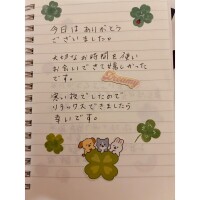 今日は ありがとう
ございました。
大切なお時間を使い
お会いできて嬉しかった
です。
寒い夜でしたので
リラックスできましたら
幸いです。